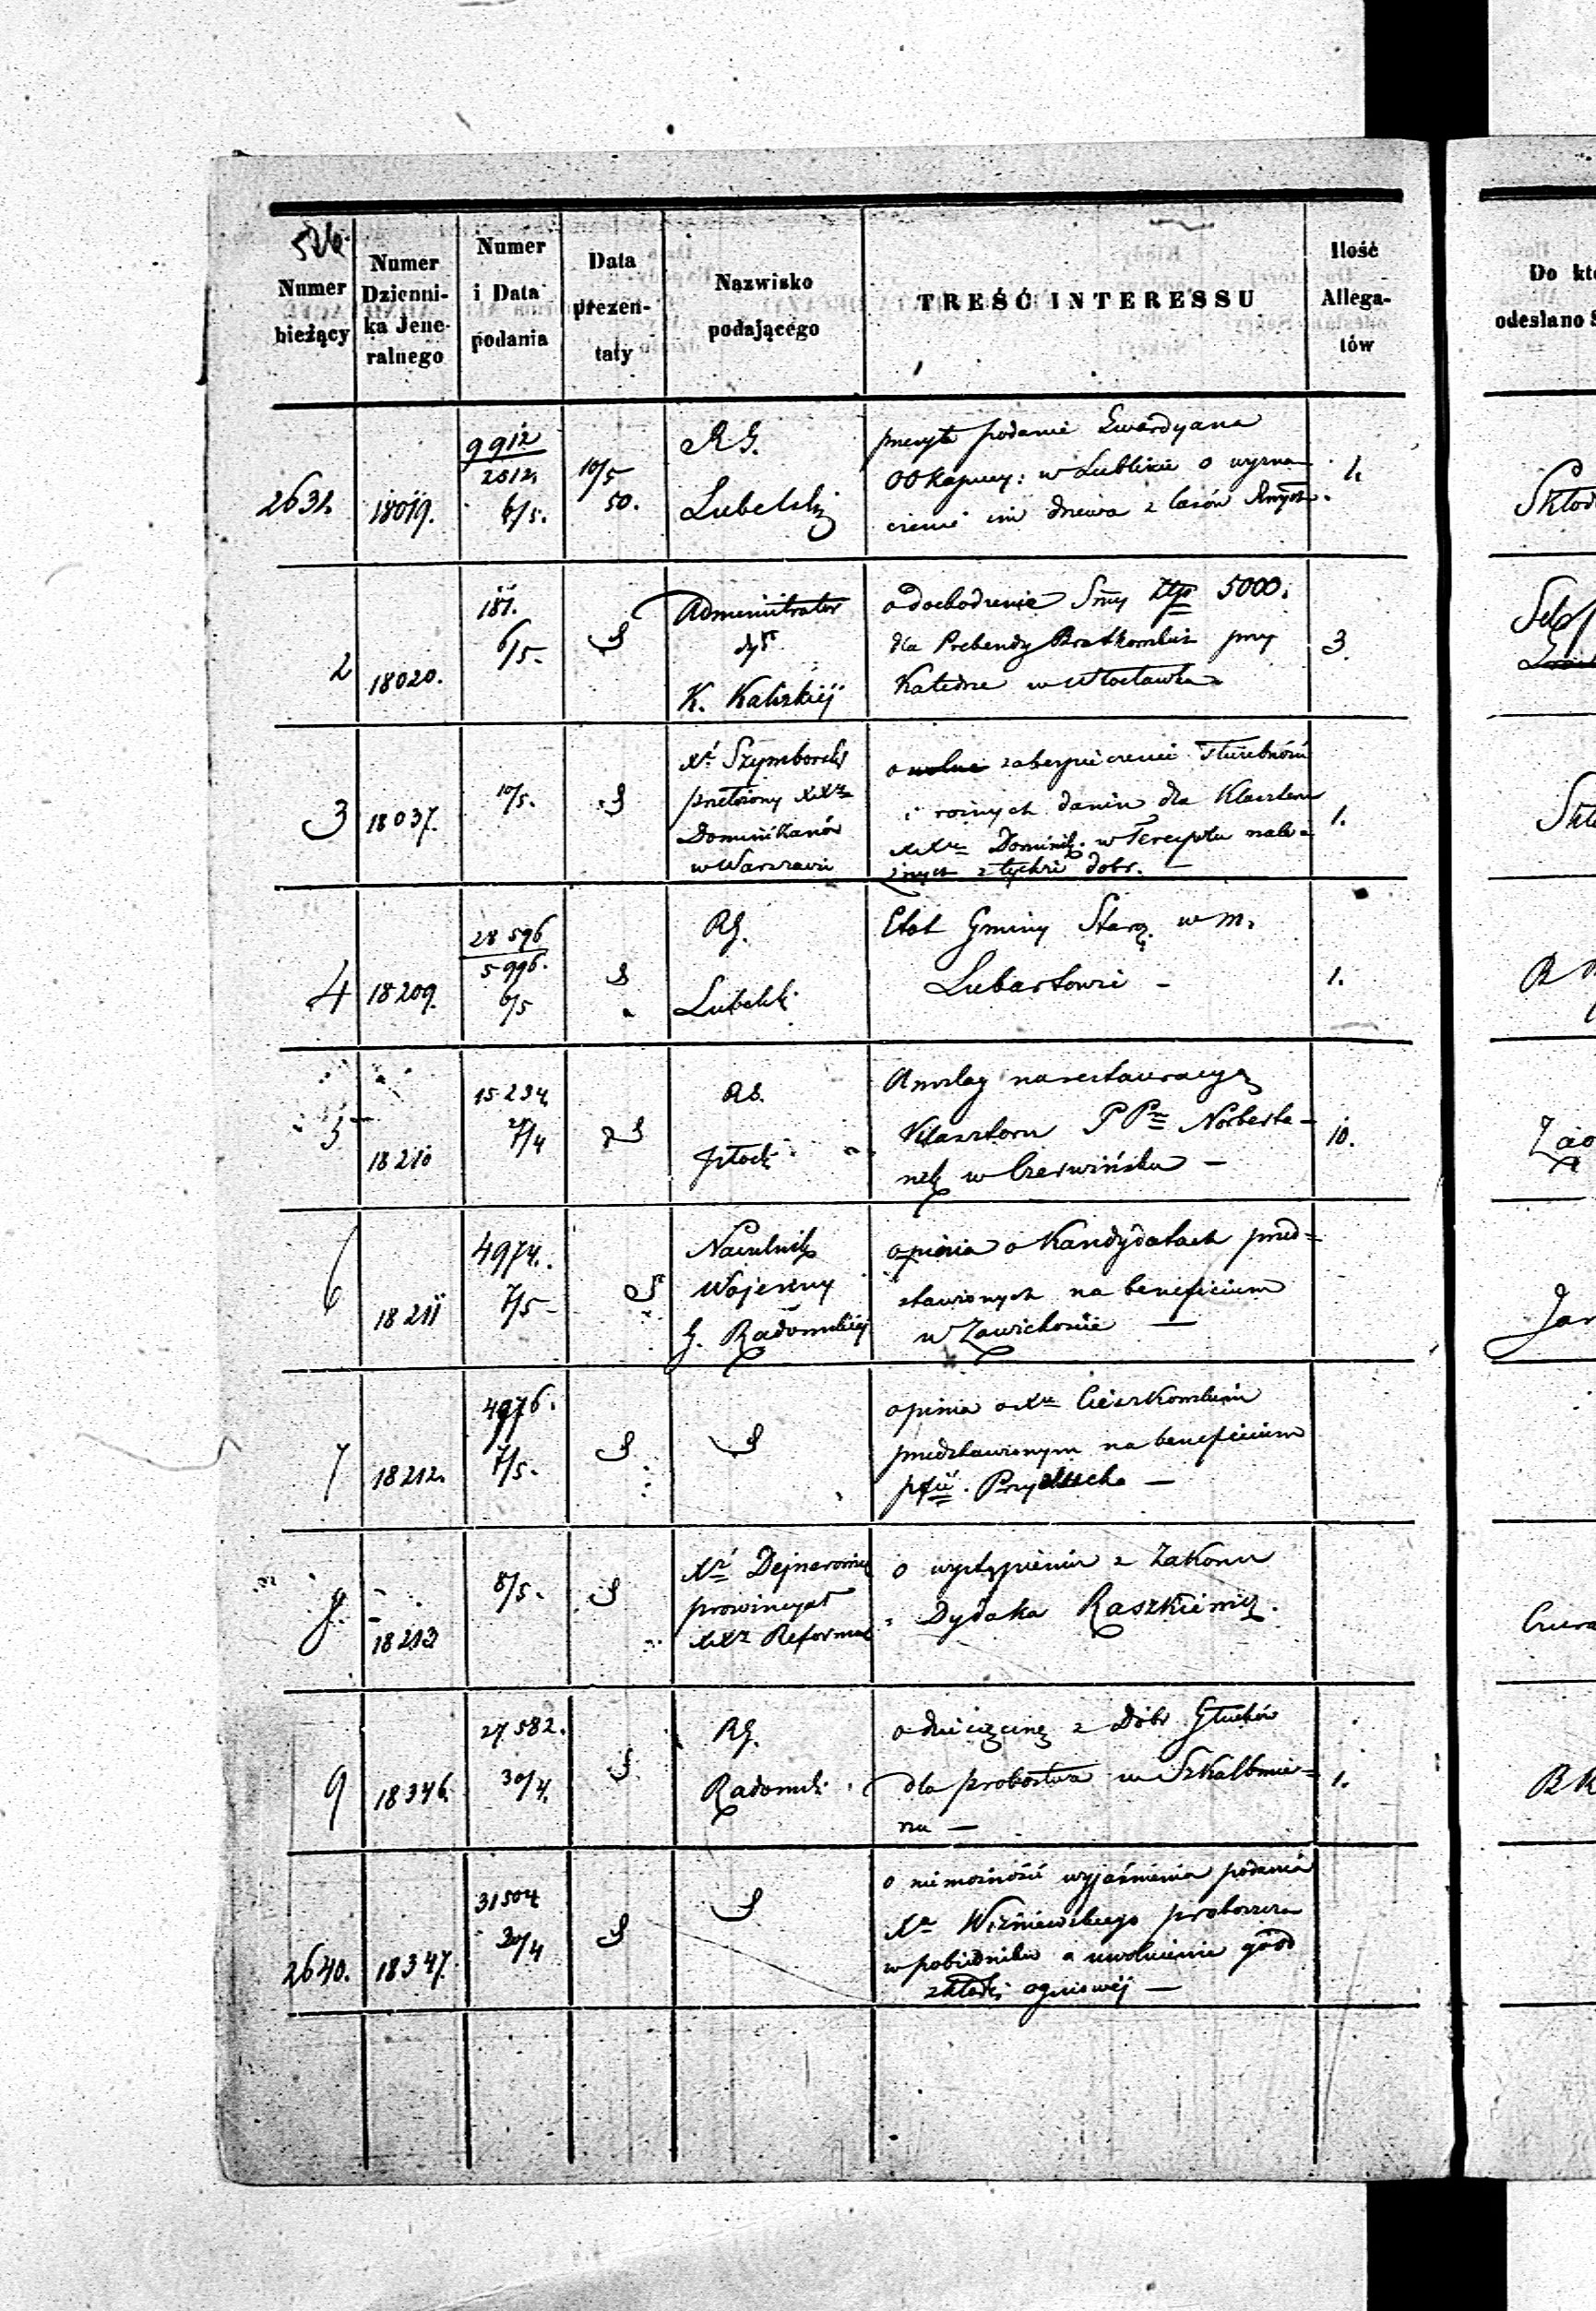 Numer bieżący
Numer Dzienni-
ka Jene-
ralnego
Numer
i Data
podania
Data
prezen-
taty
Nazwisko
podającego
TREŚĆ INTERESSU
Ilość
Allega-
tów
Do kt
odesłano
2631.
18019.
9912
2812.
6/5.
10/5
50.
R G.
Lubelski
przesyła podanie Gwardyana
OO Kapucy: w Lublinie o wyzna
czenie im drzewa z lasów
1.
2
18020.
181.
6/5.
Administrator
dyc.
K. Kaliskiéj
o dochodzenie Smy Złp 5000.
dla Prebendy Bratkowskiéj przy
Katedrze w Włocławku
3.
3
18037.
10/5.
Xdz Szymborski
przełożony XXzy
Dominikanów
w Warszawie
o wolne zabezpieczenie służebności
i rożnych danin dla Klasztoru
XXzy Dominik. w Terespolu nale-
żnych z tychże dobr. —
1.
4
18209.
28596
5996.
6/5
RG.
Lubelski
Etat Gminy Staroz. w m.
Lubartowie —
1.
5
18210
15234
27/4
RG.
Płocki
Anszlag na restauracyą
Klasztoru PPn Norberta-
nek w Czerwińsku —
10.
6
18211
4974.
7/5
Naczelnik
Wojenny
G. Radomskiéj
opinia o Kandydatach przed-
stawionych na beneficium
w Zawichoście —
7
18212.
4976.
7/5.
opinia o Xdzu Cieszkowskim
przedstawionym na beneficium
Przysucha —
8
18213
8/5.
Xdz Dejnarowicz
prowincyał
XXzy Reformat
o wystąpieniu z Zakonu
Dydaka Raszkiewicz.
9
18346.
27582.
30/4.
RG.
Radomski
o dziesięcinę z Dóbr Głuchów
dla probostwa w Szkalbmie-
rzu —
1.
2640.
18347.
31504
30/4
o niemożności wyjaśnienia podania
Xdza Wiśniewskiego proboszcza
w pobiedniku o uwolnienie go od
składki ogniowéj —